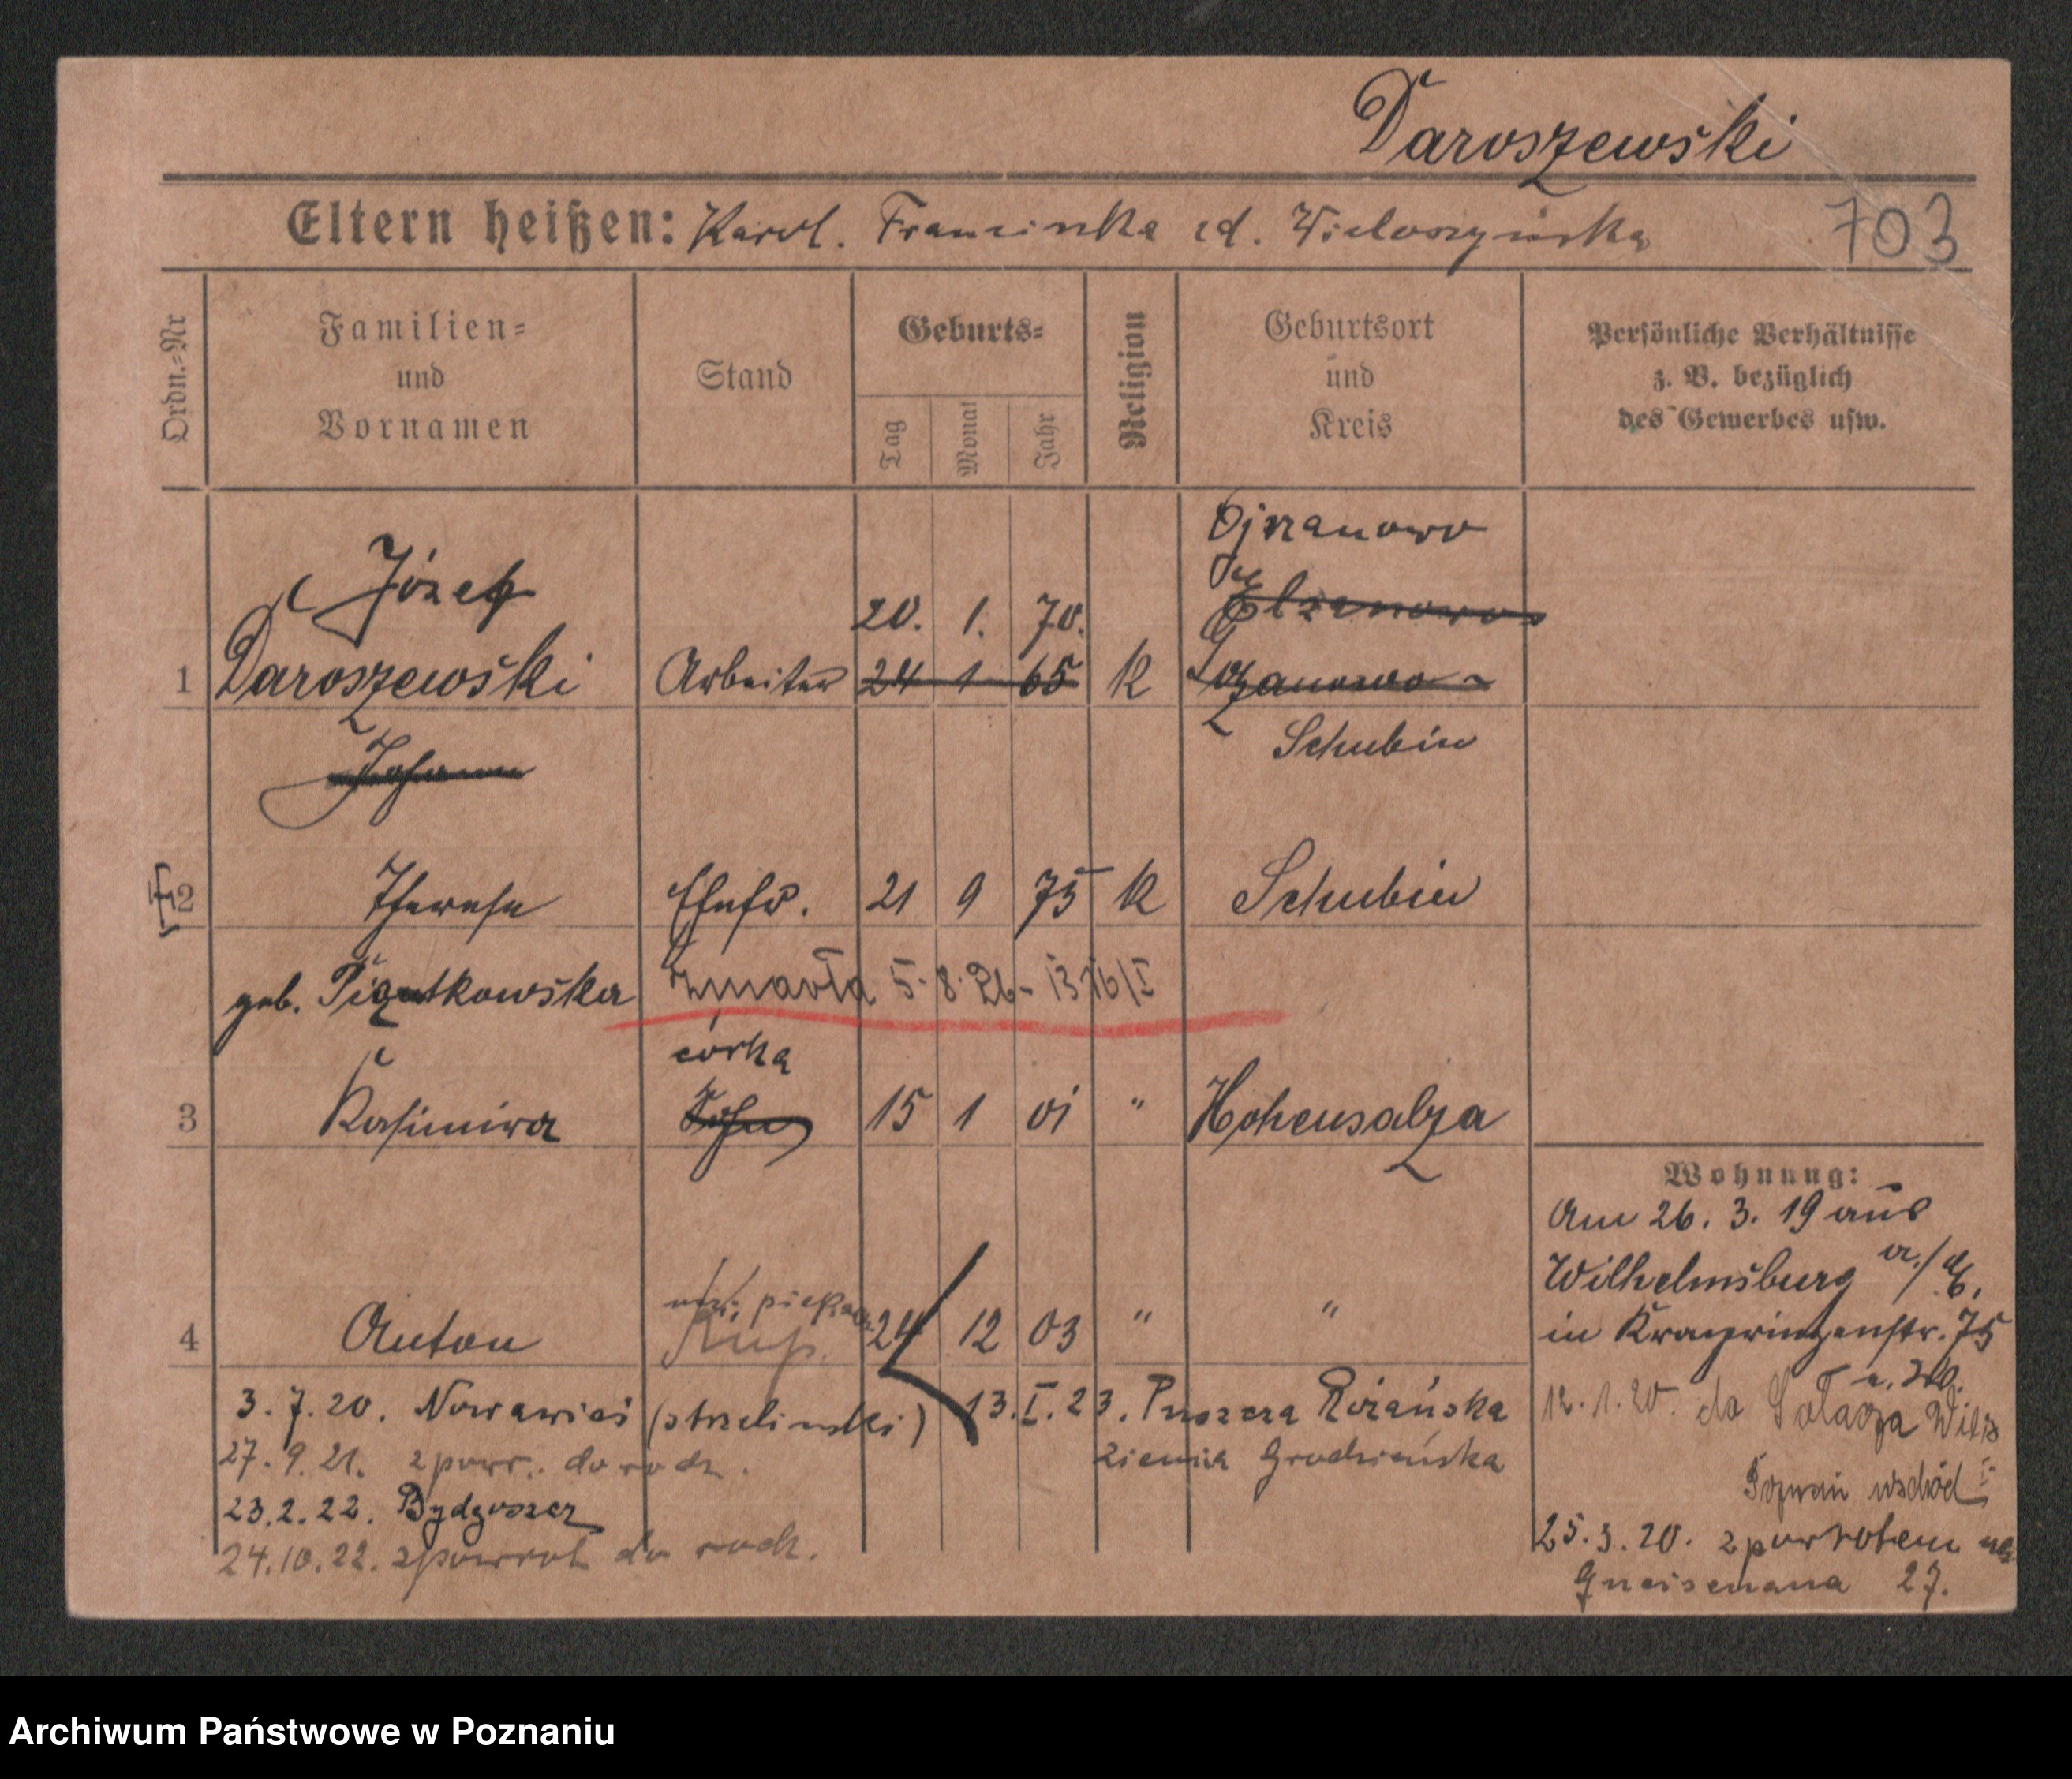 Daroszewski
Eltern heißen: Karol. Franciszka zd. Wieloszyńska
703
Ordn.=Nr
Familien=
und
Vornamen
Stand
Geburts=
Tag
Monat
Jahr
Religion
Geburtsort
und
Kreis
Persönliche Verhältnisse
z. B. bezüglich
des Gewerbes usw.
Ojrzanowo
Józef
Elzanowo
20. 1. 70.
1 Daroszewski Arbeiter 24 1 65 K
Schubin
Johann
2 Therese Ehefr. 21 9 75 K Schubin
geb. Piątkowska zmarła 5.8.26
córka
3 Kasimira Sohn 15 1 01 " Hohensalza
Wohnung:
Am 26. 3. 19 aus
Wilhelmsburg a./E.
in Kronprinzenstr. 75
ucz. piekar.
4 Anton 24 12 03 " "
3. 7. 20. Nowawieś (strzelinski) 13. I. 23. Puszcza Różańska
ziemia Grodzieńska
12. 1. 20. do Sołacza
27. 9. 21. zpowr. do rodz.
Poznań wschód
23. 2. 22. Bydgoszcz
25. 3. 20. zpowrotem
24. 10. 22. zpowrot do rodz.
Gneisenaua 27.
Archiwum Państwowe w Poznaniu